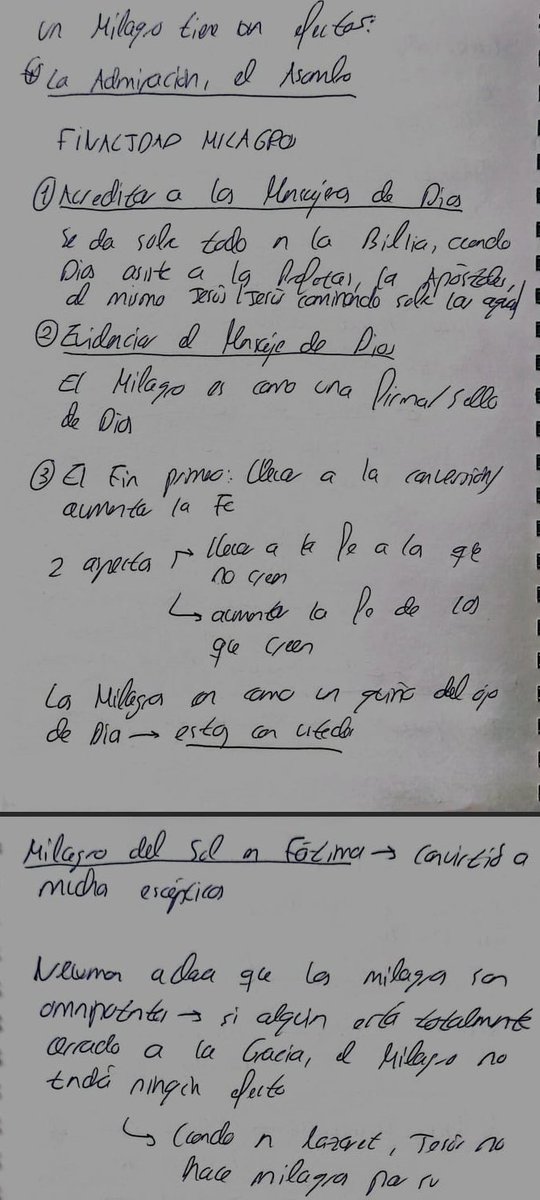 un Milagro tiene un efectos:
La Admiración, el Asombro
FINALIDAD MILAGROS
① Acreditar a los Mensajeros de Dios
Se da sobre todo en la Biblia, cuando
Dios asiste a los Profetas, los Apóstoles,
al mismo Jesús (Jesús caminando sobre las aguas)
② Evidenciar el Mensaje de Dios
El Milagro es como una firma/sello
de Dios
③ El Fin primero: llevar a la conversión/
aumentar la Fe
2 aspectos → llevar a la fe a los que
no creen
↳ aumentar la fe de los
que creen
Los Milagros son como un guiño del ojo
de Dios → estoy con ustedes
Milagro del Sol en Fátima → Convirtió a
muchos escépticos
Newman aclara que los milagros son
omnipotentes → si alguien está totalmente
cerrado a la Gracia, el Milagro no
tendrá ningún efecto
↳ Cuando en Nazaret, Jesús no
hace milagros por su